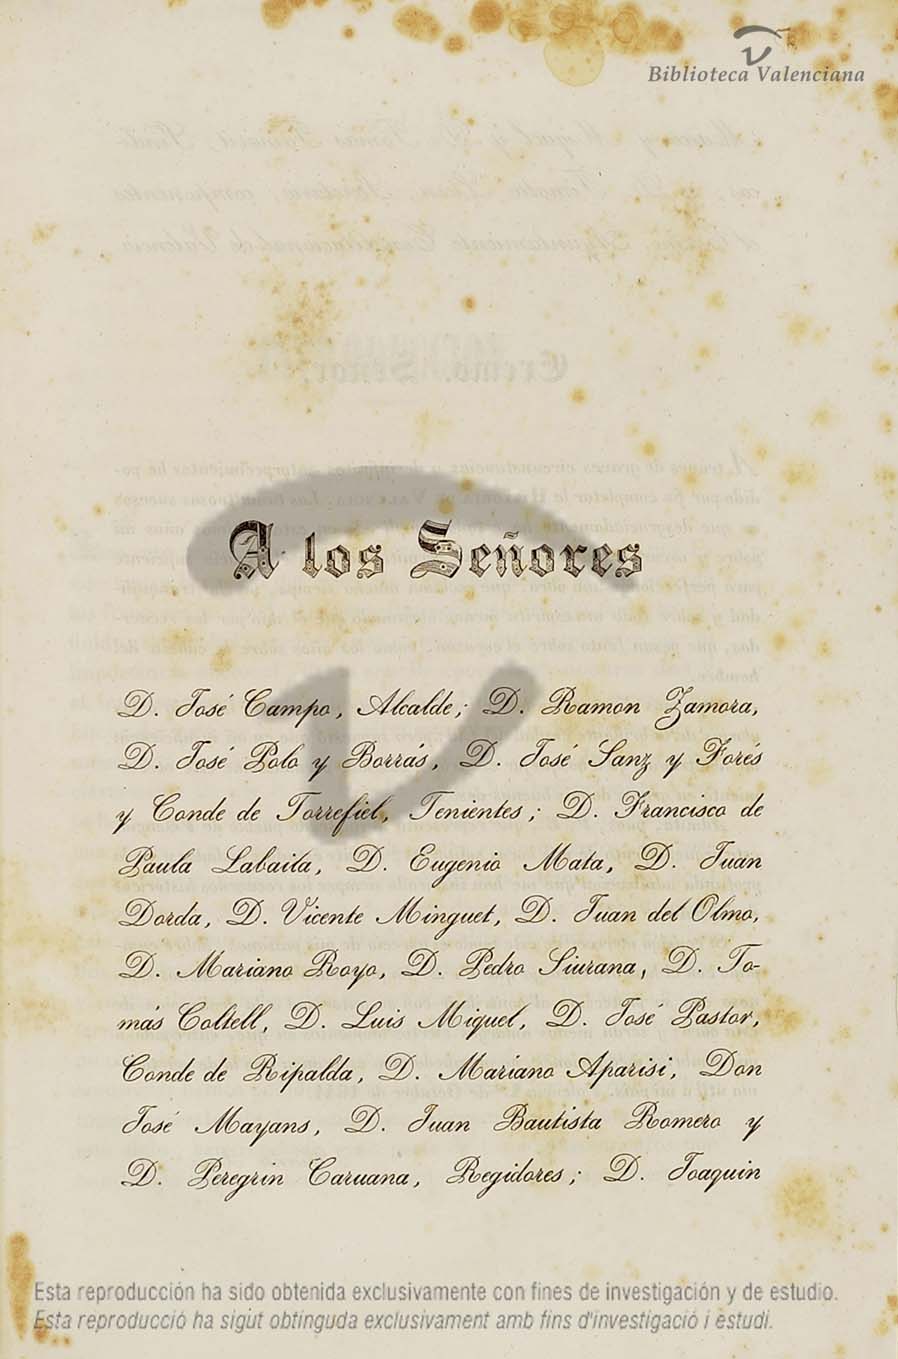 Biblioteca Valenciana
A los Señores
D. José Campo, Alcalde; D. Ramon Zamora,
D. José Polo y Borrás, D. José Sanz y Forés
y Conde de Torrefiel, Tenientes; D. Francisco de
Paula Labaila, D. Eugenio Mata, D. Juan
Dorda, D. Vicente Minguet, D. Juan del Olmo,
D. Mariano Royo, D. Pedro Siurana, D. To-
más Coltell, D. Luis Miquel, D. José Pastor,
Conde de Ripalda, D. Mariano Aparisi, Don
José Mayans, D. Juan Bautista Romero y
D. Peregrin Caruana, Regidores; D. Joaquin
Esta reproducción ha sido obtenida exclusivamente con fines de investigación y de estudio.
Esta reproducció ha sigut obtinguda exclusivament amb fins d'investigació i estudi.